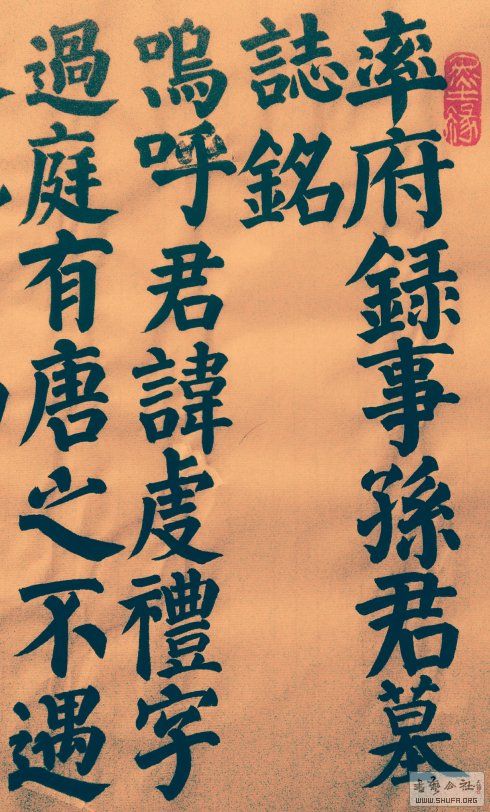 率府録事孫君墓
誌銘
嗚呼君諱虔禮字
過庭有唐之不遇
WWW.SHUFA.ORG